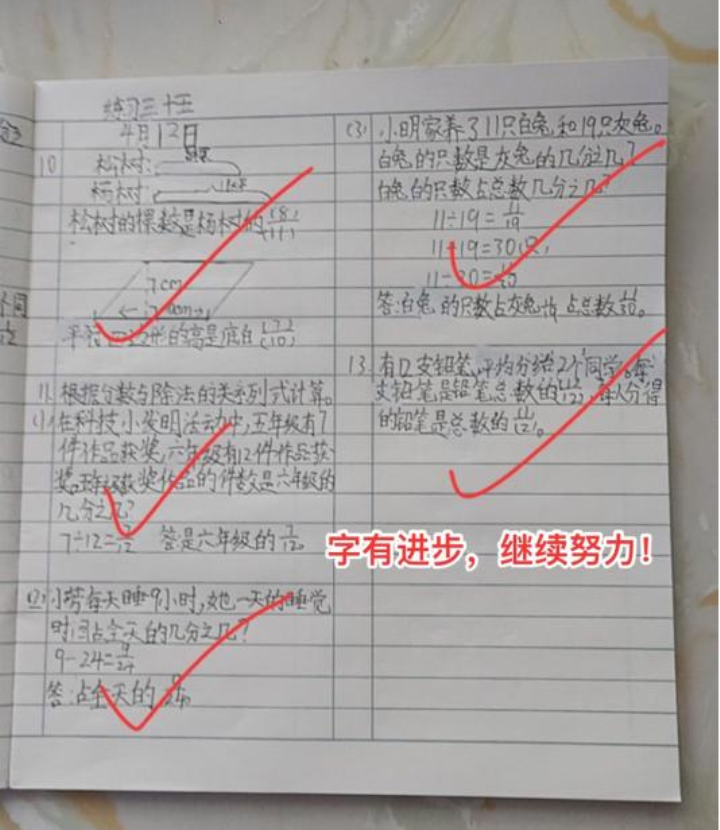 练习三十五
4月12日
10 松树: 8棵
杨树: 11棵
松树的棵数是杨树的(8)/(11)
7cm
10cm
平行四边形的高是底的(7)/(10)
11. 根据分数与除法的关系列式计算。
(1)在科技小发明活动中,五年级有7
件作品获奖,六年级有12件作品获
奖,五年级获奖作品的件数是六年级的
几分之几?
7÷12=7/12 答:是六年级的7/12。
(2)小芳每天睡9小时,她一天的睡觉
时间占全天的几分之几?
9-24=9/24
答:占全天的9/24。
(3) 小明家养了11只白兔和19只灰兔。
白兔的只数是灰兔的几分之几?
白兔的只数占总数几分之几?
11÷19=11/19
11+19=30(只)
11÷30=11/30
答:白兔的只数占灰兔 占总数11/30。
13. 有12支铅笔,平均分给2个同学。每
支铅笔是铅笔总数的(1)/(12),每人分得
的铅笔是总数的
字有进步,继续努力!